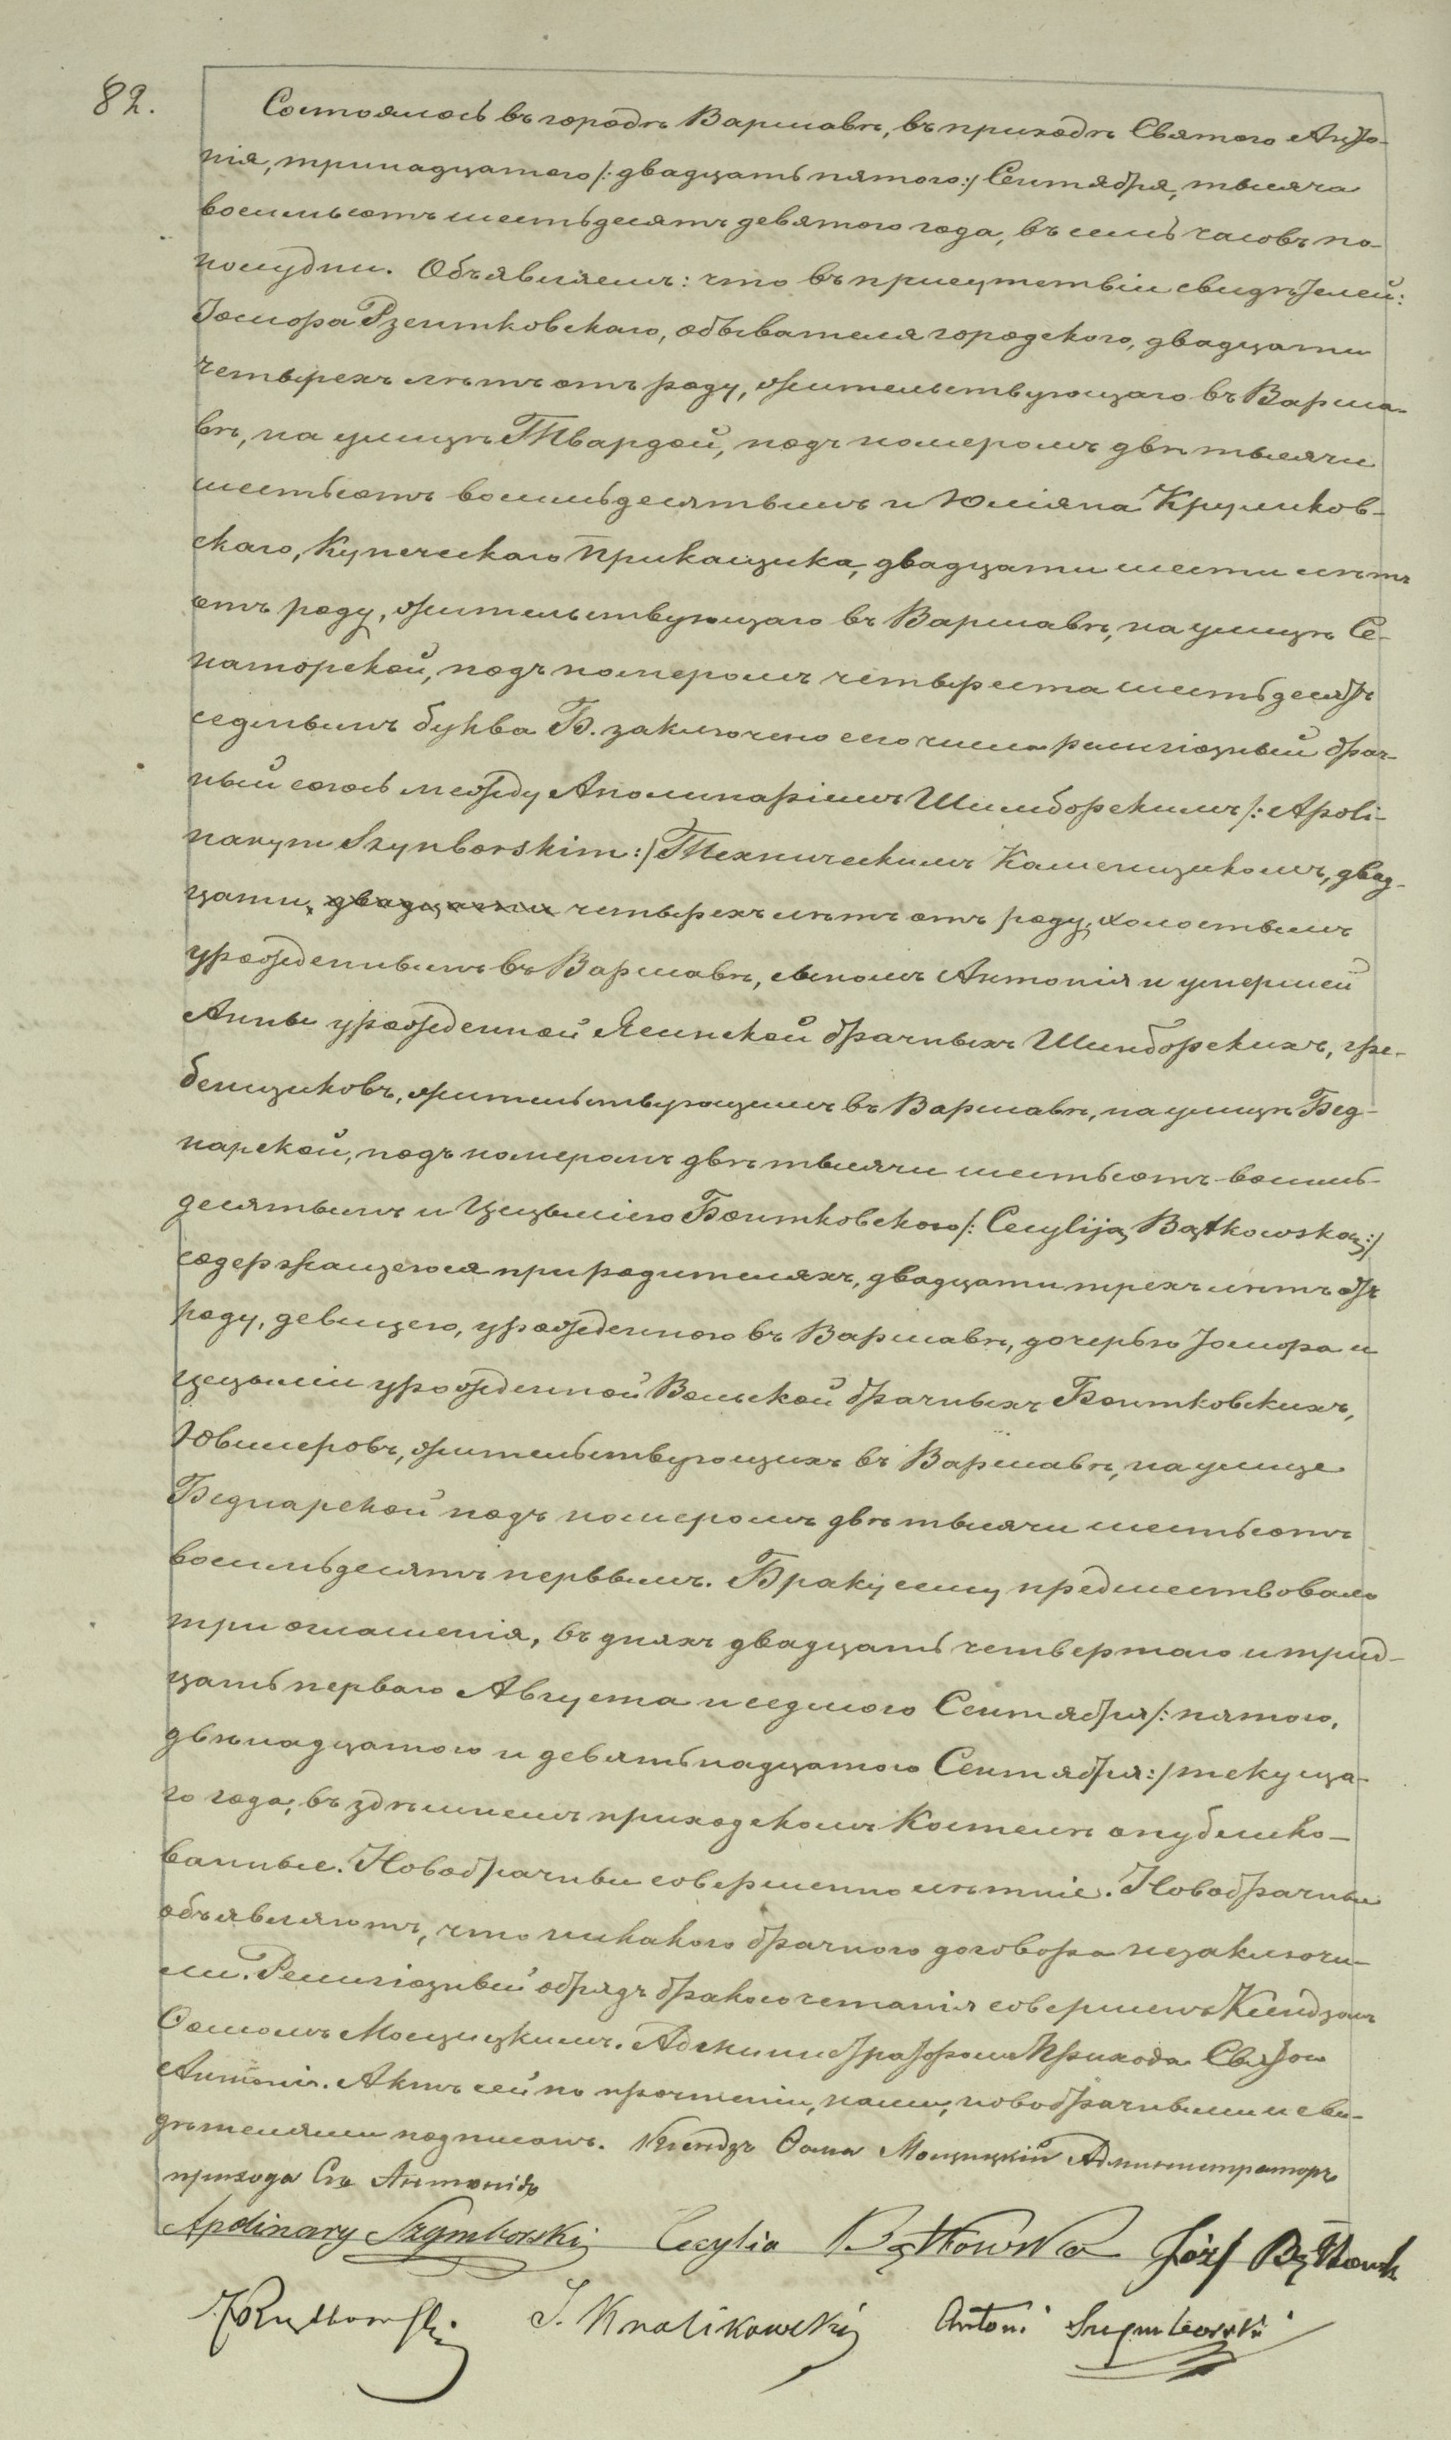 82.
Состоялось въ городѣ Варшавѣ, въ приходѣ Святого Анто-
нія, тринадцатого /: двадцать пятого :/ Сентября, тысяча
восемьсотъ шестьдесятъ девятого года, въ семь часовъ по-
полудни. Объявляемъ: что въ присутствіи свидѣтелей:
Іосифа Рзентковскаго, обывателя городского, двадцати
четырехъ лѣтъ отъ роду, жительствующаго въ Варша-
вѣ, на улицѣ Твардой, подъ номеромъ двѣ тысячи
шестьсотъ восемьдесятымъ и Юліяна Круликов-
скаго, Купеческаго Прикащика, двадцати шести лѣтъ
отъ роду, жительствующаго въ Варшавѣ, на улицѣ Се-
наторской, подъ номеромъ четыреста шестьдесятъ
седмымъ буква Б. заключено сего числа религіозный брач-
ный союзъ между Аполинаріемъ Шимборскимъ /: Apoli-
narym Szynborskim :/ Техническимъ Каменщикомъ, двад-
цати, двадцати четырехъ лѣтъ отъ роду, холостымъ
урожденнымъ въ Варшавѣ, сыномъ Антонія и умершей
Анны урожденной Ясинской брачныхъ Шинборскихъ, гре-
бенщиковъ, жительствующимъ въ Варшавѣ, на улицѣ Бед-
нарской, подъ номеромъ двѣ тысячи шестьсотъ восемь-
десятымъ и Цецылією Бонтковского /: Cecyliją Bątkowską :/
содержащеюся при родителяхъ, двадцати трехъ лѣтъ отъ
роду, девицею, урожденною въ Варшавѣ, дочерью Іосифа и
Цецыліи урожденной Вольской брачныхъ Бонтковскихъ,
Ювилеровъ, жительствующихъ въ Варшавѣ, на улице
Беднарской подъ номеромъ двѣ тысячи шестьсотъ
восемьдесятъ первымъ. Браку сему предшествовало
три оглашенія, въ дняхъ двадцать четвертаго и трид-
цать перваго Августа и седмого Сентября /: пятого,
двѣнадцатого и девятьнадцатого Сентября :/ текуща-
го года, въ здѣшнемъ приходскомъ Костелѣ опублико-
ванные. Новобрачные совершеннолѣтніе. Новобрачные
объявляютъ, что никакого брачного договора незаключи-
ли. Религіозный обрядъ бракосочетанія совершенъ Ксендзомъ
Ѳомомъ Мощицкимъ. Администраторомъ Прихода Святого
Антонія. Актъ сей по прочтеніи, нами, новобрачными и сви-
дѣтелями подписанъ. Ксендзъ Ѳома Мощицкій Администраторъ
прихода Св. Антонія
Apolinary Szymborski Cecylia Bątkowska Józef Bątkowsk
J. Krolikowski Antoni Szymborski